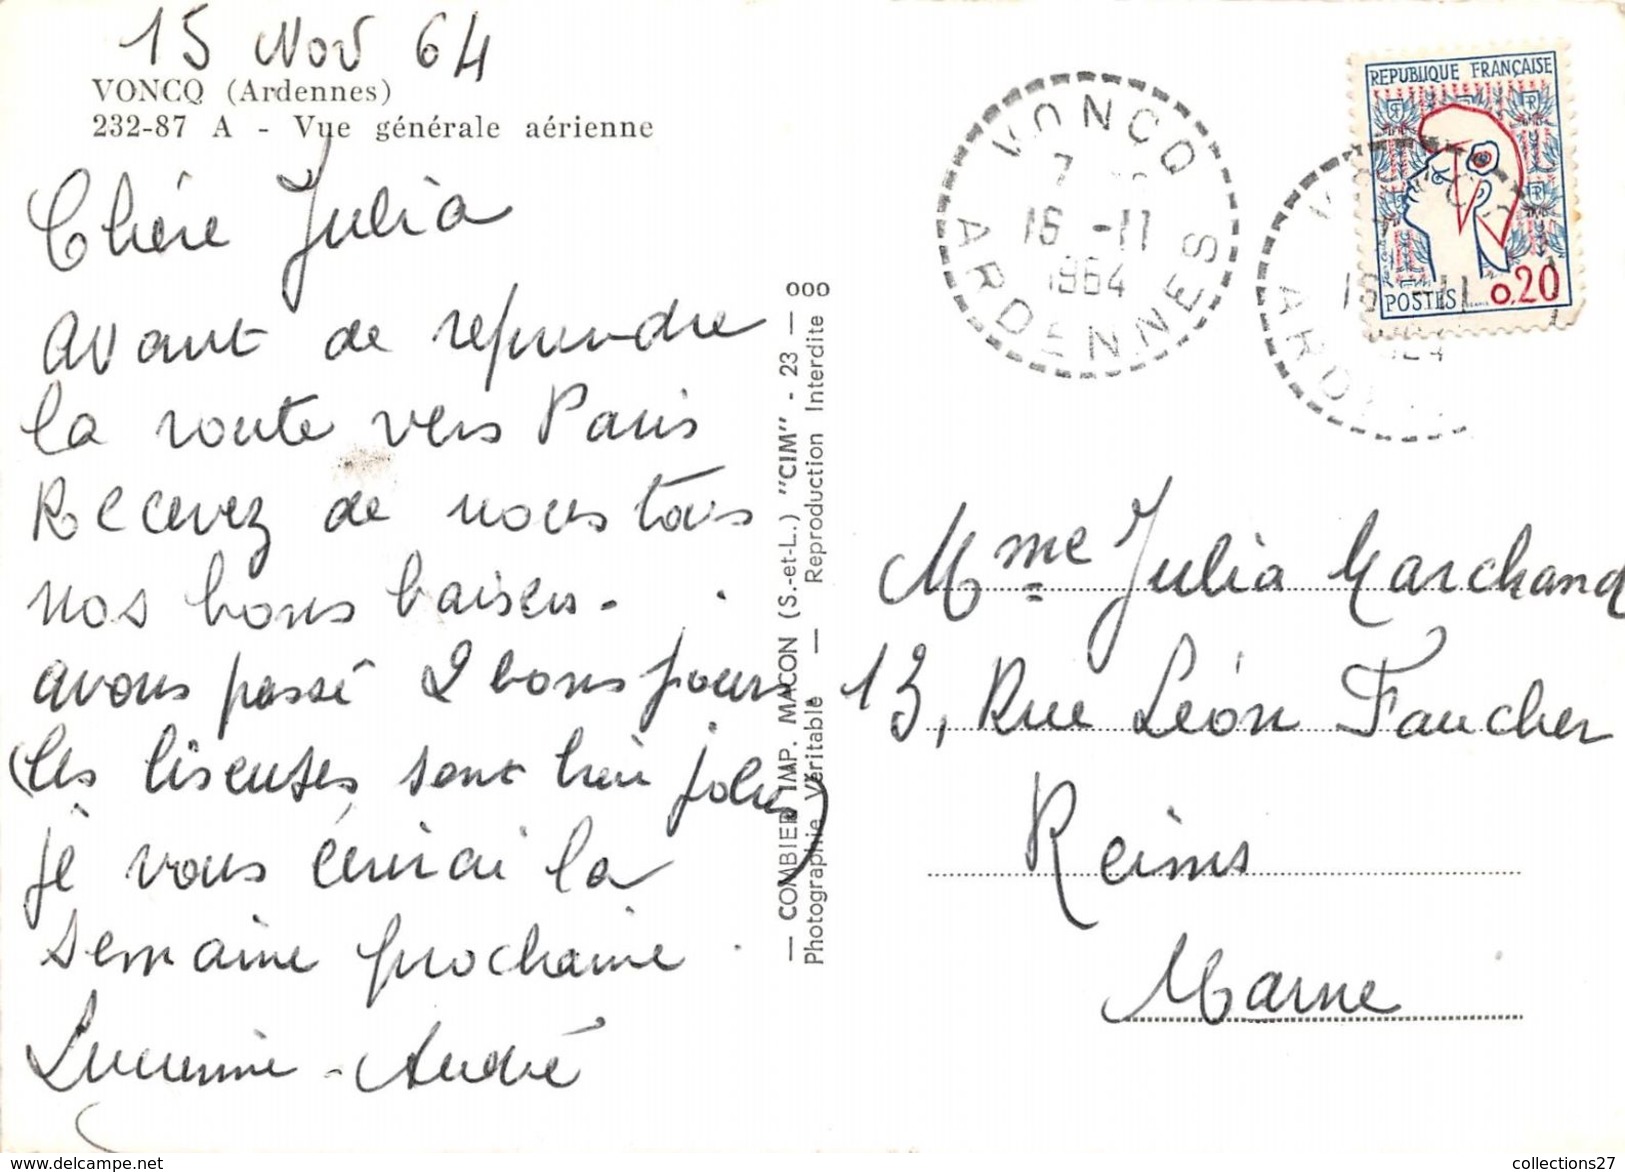 15 Nov 64
VONCQ (Ardennes)
232-87 A - Vue générale aérienne
Chère Julia
avant de reprendre
la route vers Paris
Recevez de nous tous
nos bons baisers.
avons passé 2 bons jours
(les liseuses sont bien jolies)
je vous écrirai la
semaine prochaine.
Lucienne - André
— COMBIER IMP. MACON (S.-et-L.) "CIM" - 23 — ooo
Photographie Véritable — Reproduction Interdite
VONCQ
7
16 -11
1964
ARDENNES
REPUBLIQUE FRANÇAISE
POSTES 0,20
16 -11
Mme Julia Marchand
13, Rue Léon Faucher
Reims
Marne
collections27